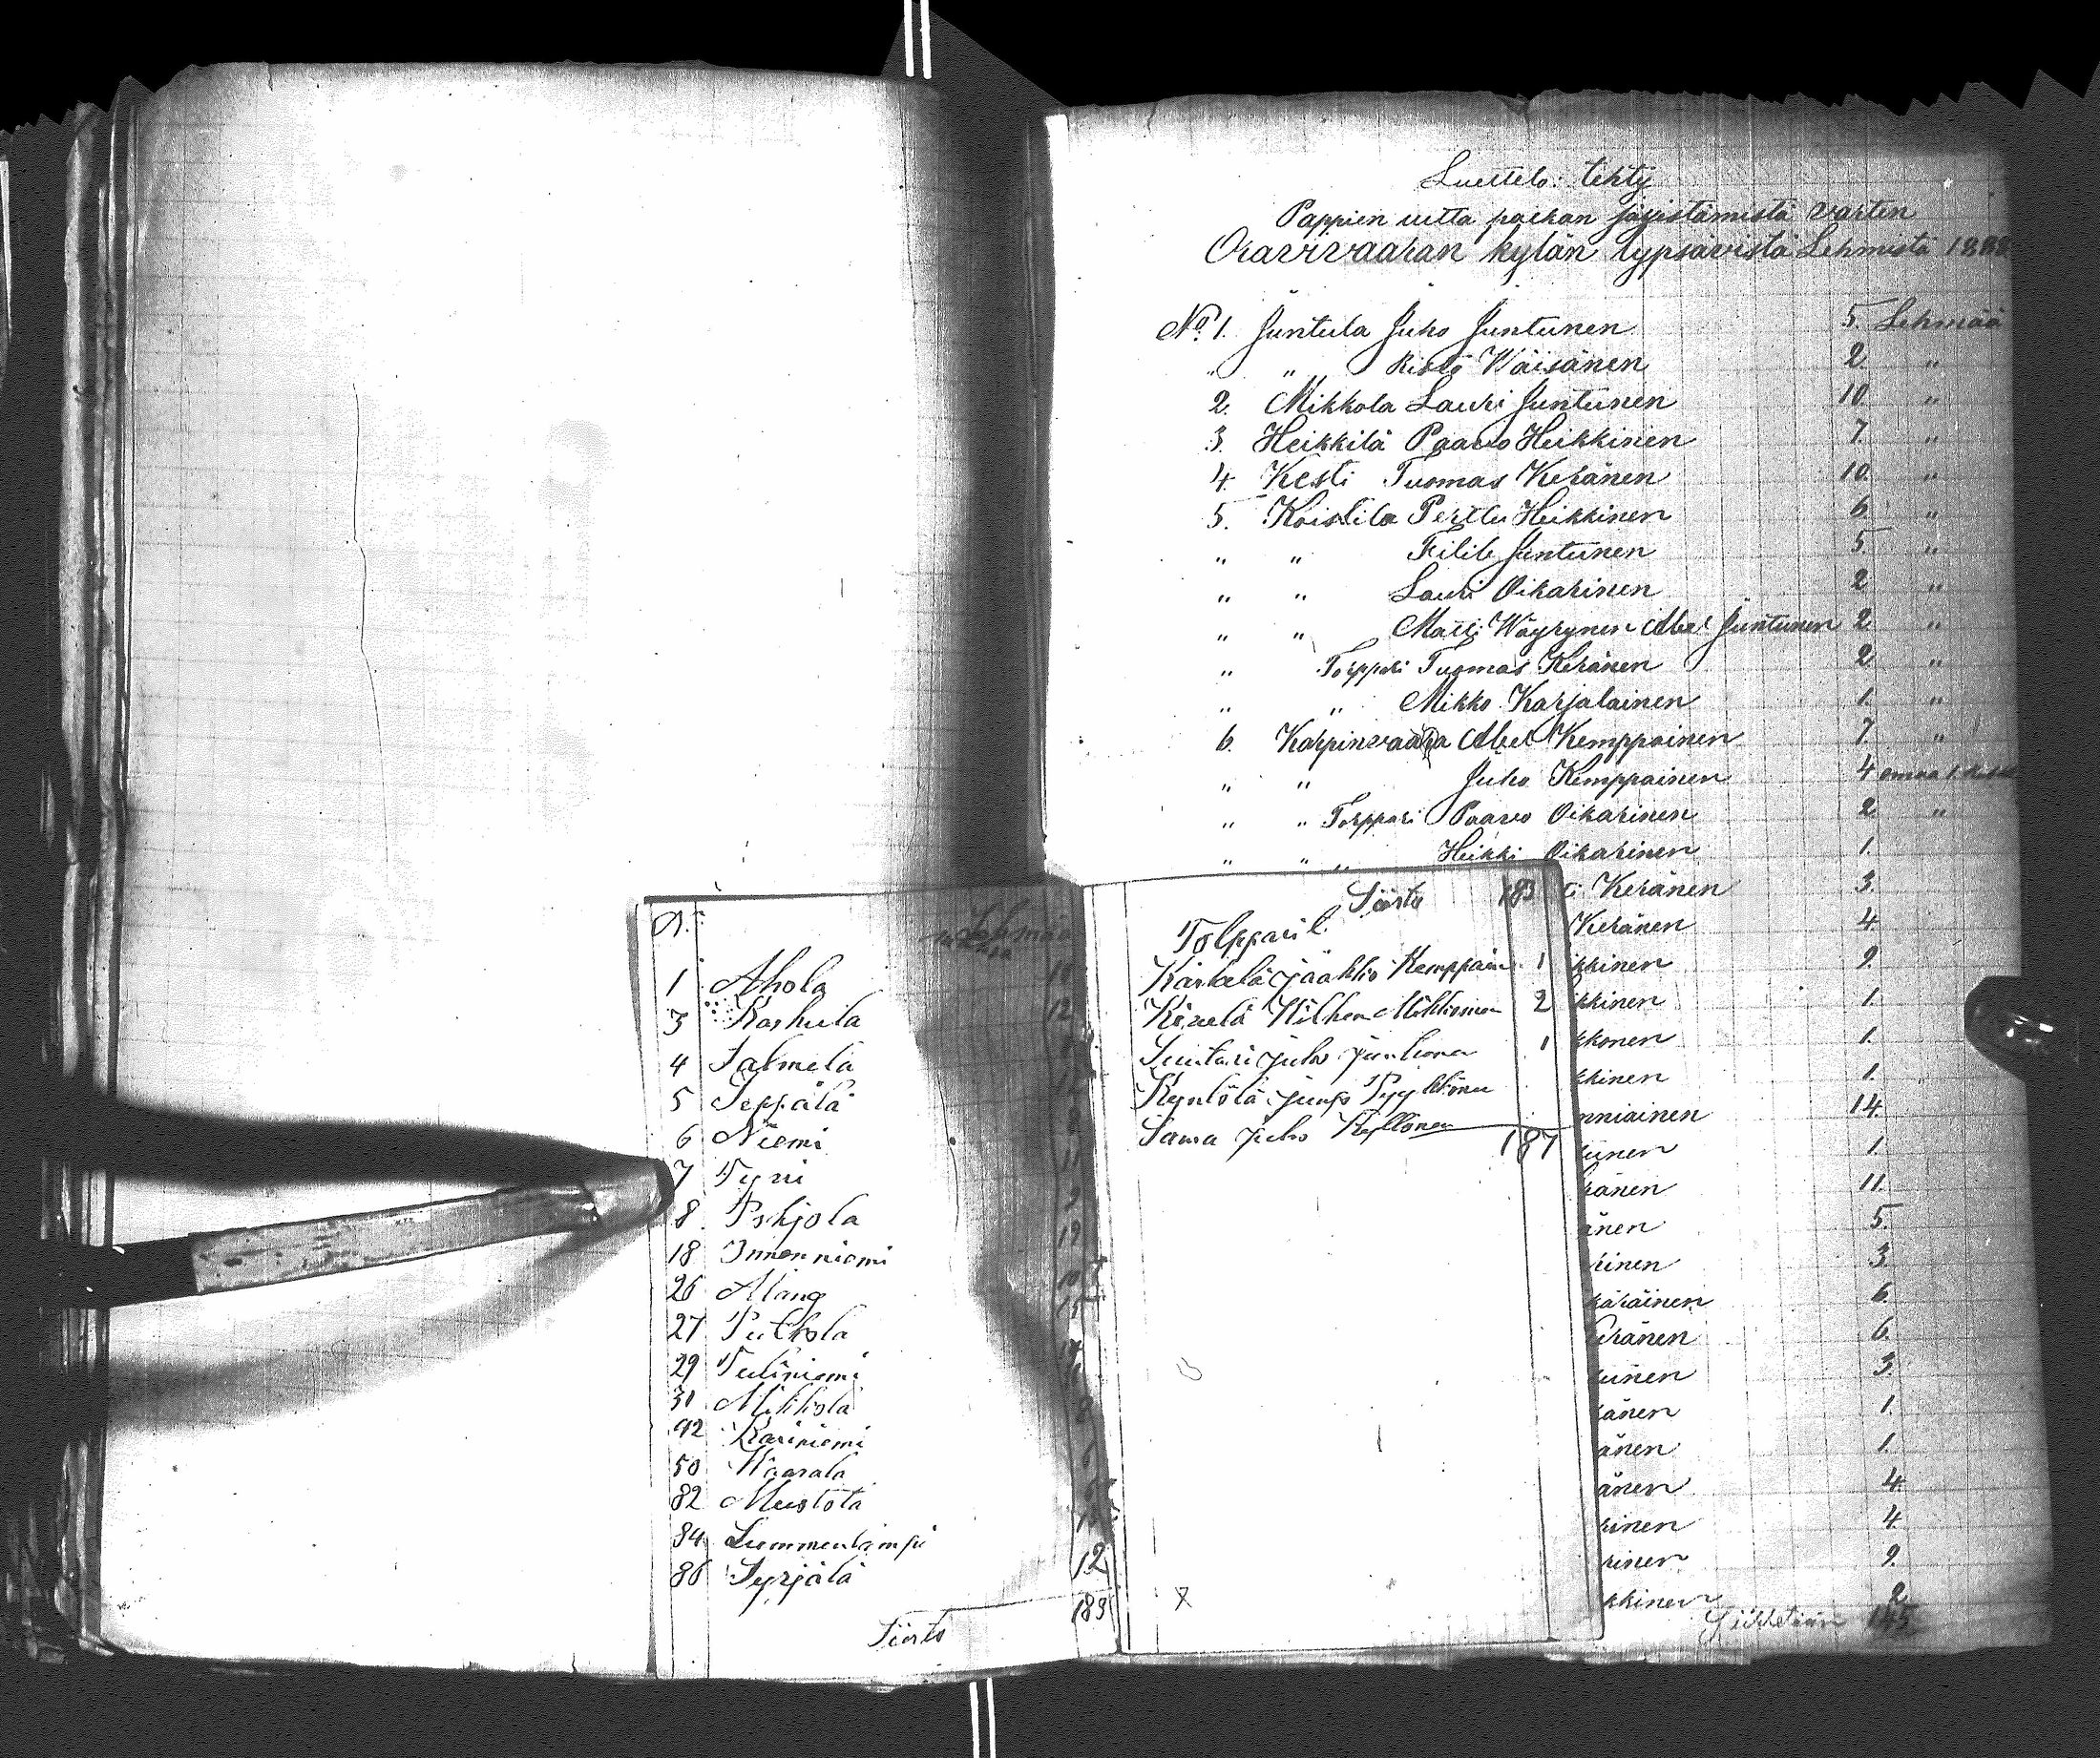 Luettelo: tehty
Pappien uutta palkan järistämistä varten
Oravivaaran kylän lypsävistä Lehmistä 1888
No 1. Juntula Juho Juntunen 5. Lehmää
" " Risto Wäisänen 2 "
2. Mikkola Lauri Juntunen 10 "
3. Heikkilä Paavo Heikkinen 7. "
4. Kesti Tuomas Keränen 10. "
5. Koistila Perttu Heikkinen 6 "
" " Filib Juntunen 5. "
" " Lauri Oikarinen 2 "
" " Matti Wäyrynen Abel Juntunen 2 "
" Torppari Tuomas Keränen 2 "
" " Mikko Karjalainen 1. "
6. Karpinvaara Abel Kemppainen 7. "
" " Juho Kemppainen 4 omaa 1
" " Torppari Paavo Oikarinen 2 "
" " " Heikki Oikarinen 1.
ti Keränen 3.
Keränen 4.
kkinen 9.
kkinen 1.
kkonen 1.
kkinen 1.
nniainen 14.
unen 1.
ränen 11.
änen 5.
rinen 3.
käräinen 6.
eränen 6.
unen 3.
känen 1.
änen 1.
änen 4.
rinen 4.
rinen 9.
kkinen 2
Yhteensä 145
N:
Lehmää
1 Ahola
3 Karhula 12
4 Salmela
5 Seppälä
6 Niemi
7 Tyni 11
8 Pohjola
18 Immonniemi 12
26 Alanq
27 Putkola
29 Tuliniemi
31 Mikkola
42 Kariniemi
50 Waarala
82 Mustola
84 Lummenlampi
86 Syrjälä 12
Siirto 183
Siirto 183
Torpparit.
Karkela Jaakko Kemppain. 1
Kivelä Wilhem Mikkonen 2
Suutari Juho Juntunen 1
Kyntölä Junjo Pyykkönen
Sama Juho Kyllönen
187